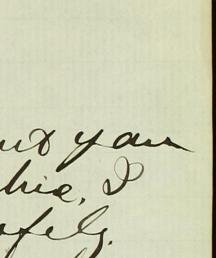 ut you
hie, I
afely.